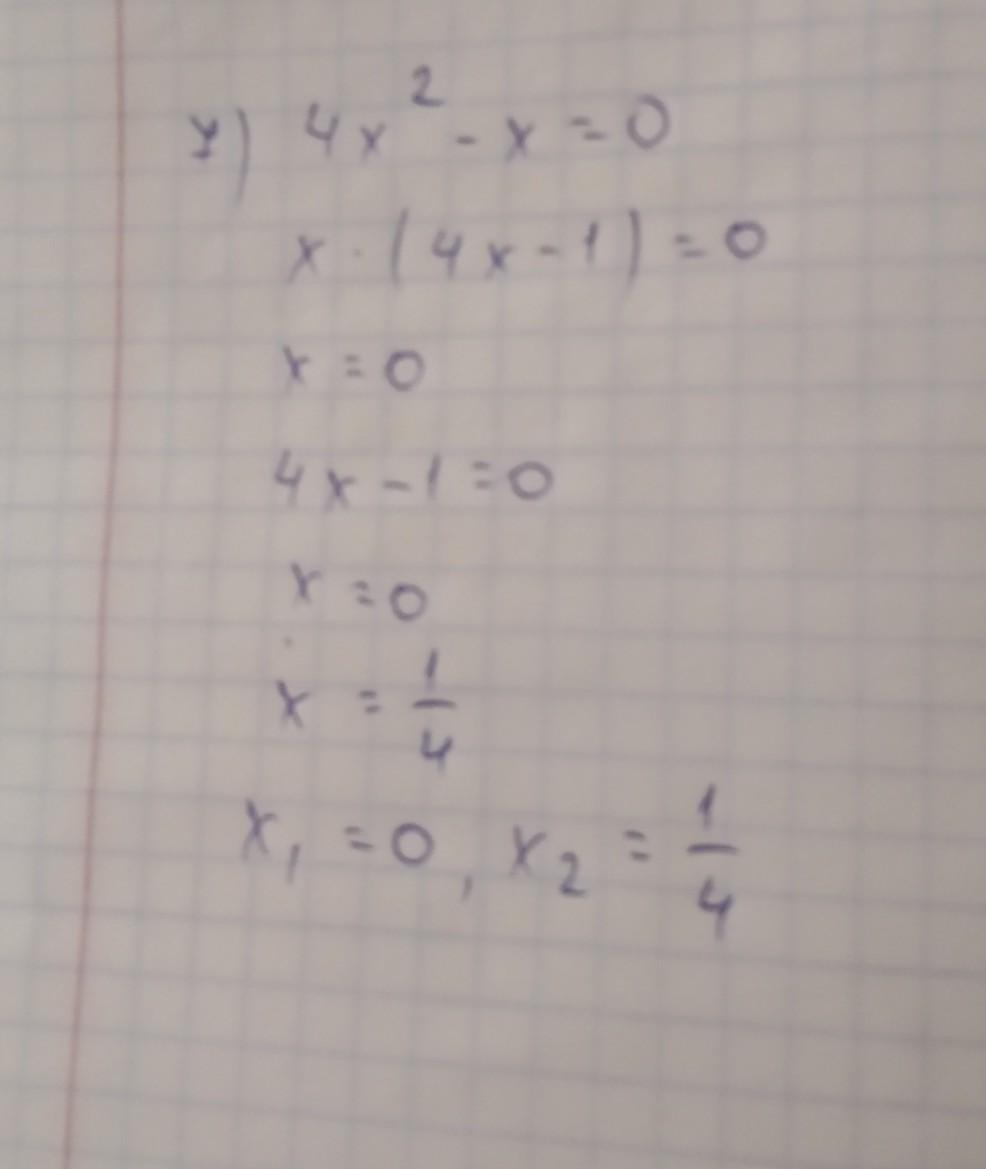 у) 4x² - x = 0
x · (4x - 1) = 0
x = 0
4x - 1 = 0
x = 0
x = 1/4
x₁ = 0, x₂ = 1/4